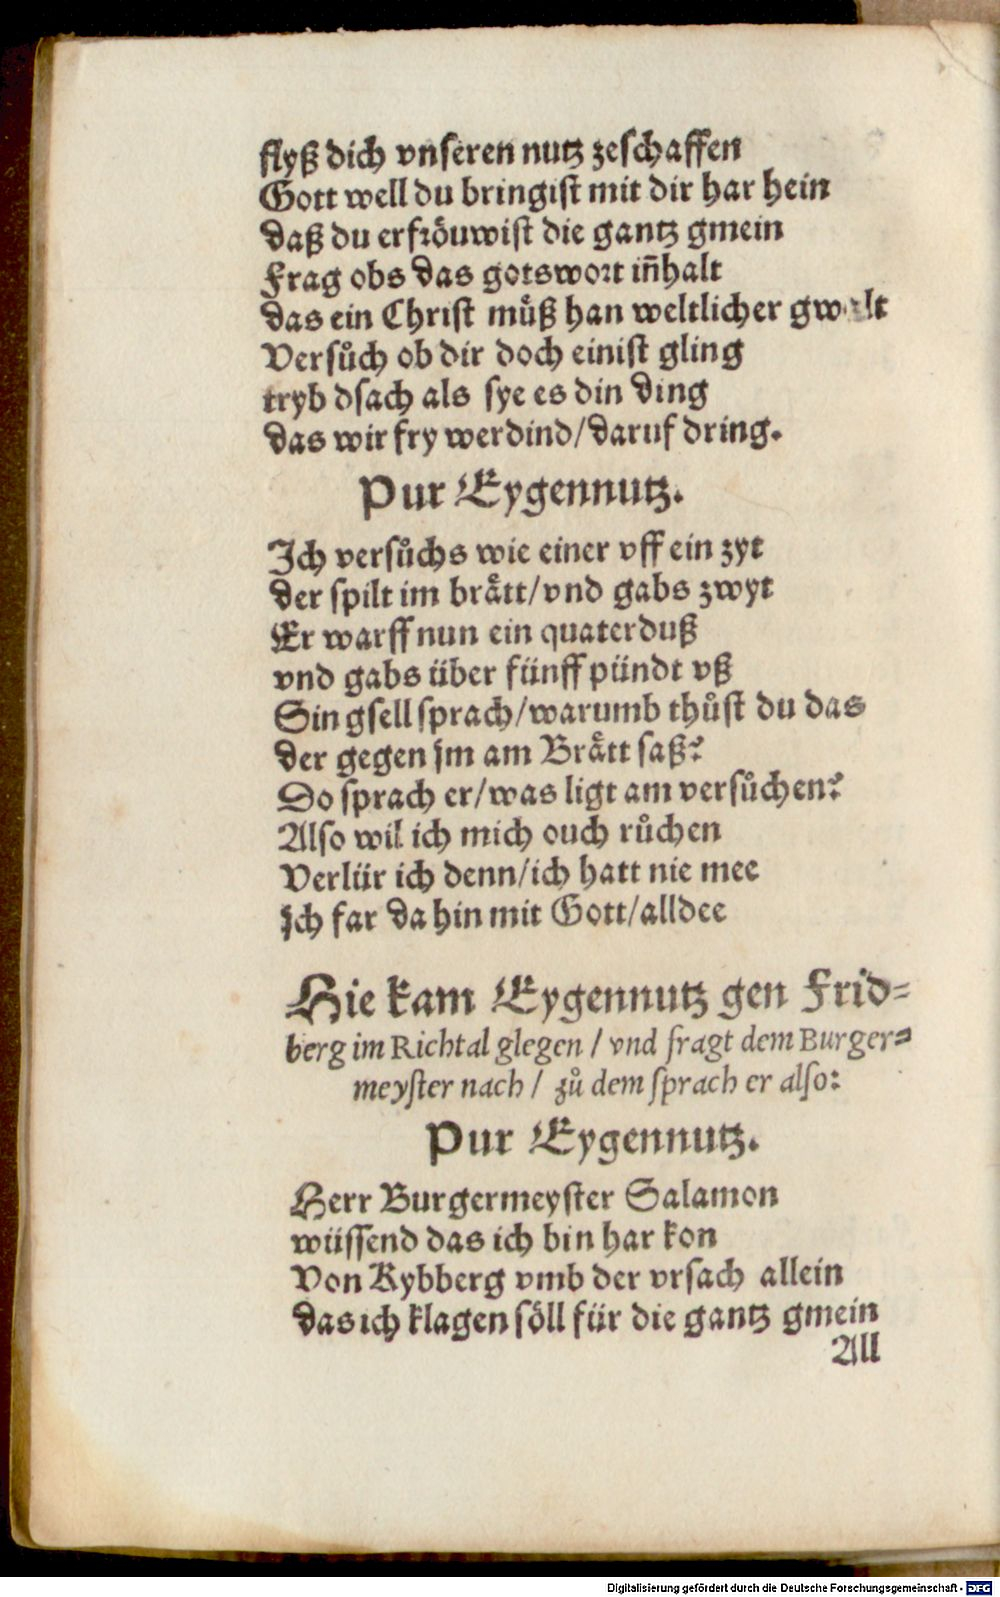 flyß dich vnseren nutz zeschaffen
Gott well du bringist mit dir har hein
daß du erfröuwist die gantz gmein
Frag obs das gotswort iñhalt
das ein Christ muͤß han weltlicher gwalt
Versuͦch ob dir doch einist gling
tryb dsach als sye es din ding
das wir fry werdind/daruf dring.
Pur Eygennutz.
Ich versuͦchs wie einer vff ein zyt
der spilt im braͤtt/vnd gabs zwyt
Er warff nun ein quaterduß
vnd gabs über fünff pündt vß
Sin gsell sprach/warumb thuͦst du das
der gegen jm am Braͤtt saß?
Do sprach er/was ligt am versuͦchen?
Also wil ich mich ouch ruͦchen
Verlür ich denn/ich hatt nie mee
Ich far da hin mit Gott/alldee
Hie kam Eygennutz gen Frid=
berg im Richtal glegen / vnd fragt dem Burger=
meyster nach / zuͦ dem sprach er also:
Pur Eygennutz.
Herr Burgermeyster Salamon
wüssend das ich bin har kon
Von Kybberg vmb der vrsach allein
das ich klagen söll für die gantz gmein
All
Digitalisierung gefördert durch die Deutsche Forschungsgemeinschaft - DFG